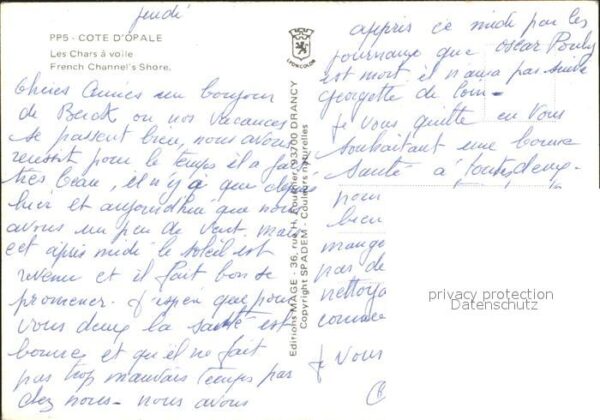 jeudi
PP5 - COTE D'OPALE
Les Chars à voile
French Channel's Shore.
LYONCOLOR
Chères Amies un bonjour
de Berck ou nos vacances
se passent bien, nous avons
réussit pour le temps il a fait
très beau, et n'y a que depuis
hier et aujourdhui que nous
avons un peu de vent. mais
cet après midi le soleil est
revenu et il fait bon se
promener. J'espère que pour
vous deux la santé est
bonnes et qu'il ne fait
pas trop mauvais temps par
chez nous - nous avons
Editions MAGE - 36, rue H. Douffier / 93700 DRANCY
Copyright SPADEM - Couleurs naturelles
appris ce midi par les
journaux que Oscar
est mort il n'aura pas suivie
georgette de loin -
Je vous quitte en vous
souhaitant une bonne
santé a toutes deux -
pour
bien
mange
pas de
nettoya
comme
Je Vous
privacy protection
Datenschutz